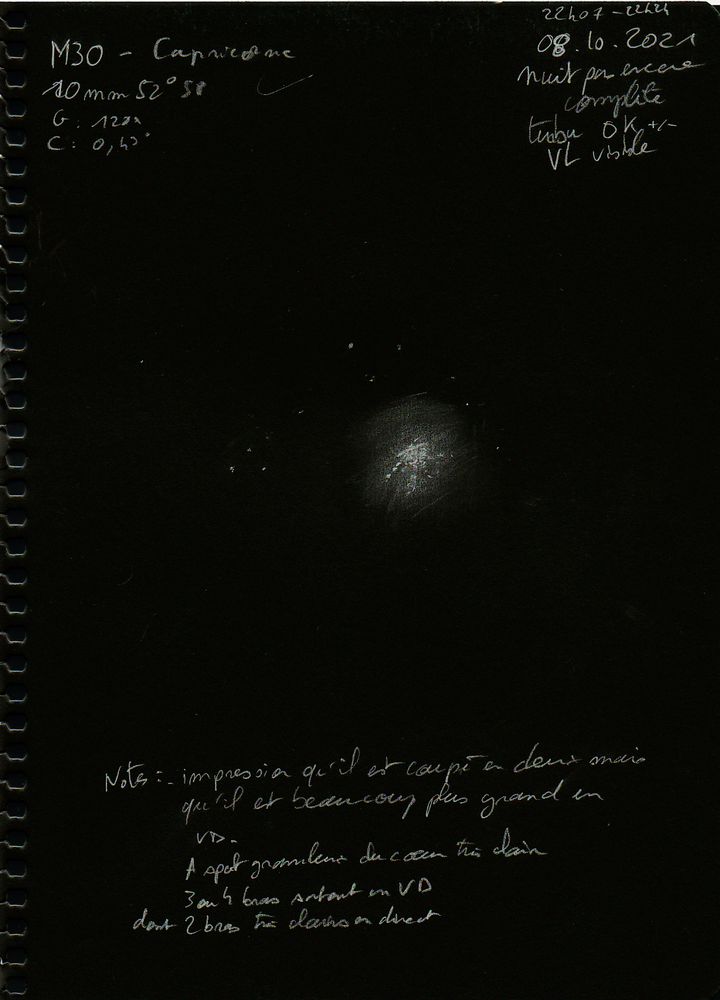 M30 - Capricorne
10mm 52° 58
G: 120x
C: 0,43°
22h07 - 22h24
08.10.2021
nuit pas encore
complète
turbu OK +/-
VL visible
Notes: - impression qu'il est coupé en deux mais
qu'il est beaucoup plus grand en
VD.
A spot granuleux du coeur très clair
3 ou 4 bras sortent en VD
dont 2 bras très clairs en direct